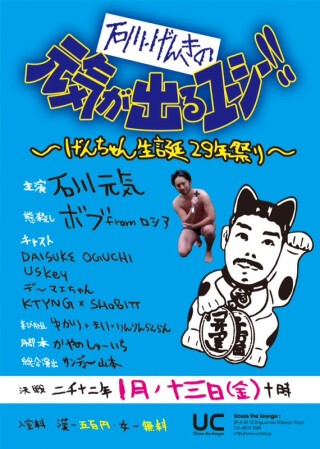 石川げんきの
元気が出るユーシー!!
〜げんちゃん生誕29年祭り〜
主演 石川元気
熊殺し ボブ from ロシア
キャスト
DAISUKE OGUCHI
USkey
デーマエちゃん
KTYNG × SHOBITT
ゆかり・まい・りんりんらんらん
脚本 がやのしゅーいち
総合演出 サンデー山本
決戦 二千十二年 1月,十三日(金)十時
入室料 漢-五百円・女-無料
UC
Ucess the Lounge
Ucess the lounge :